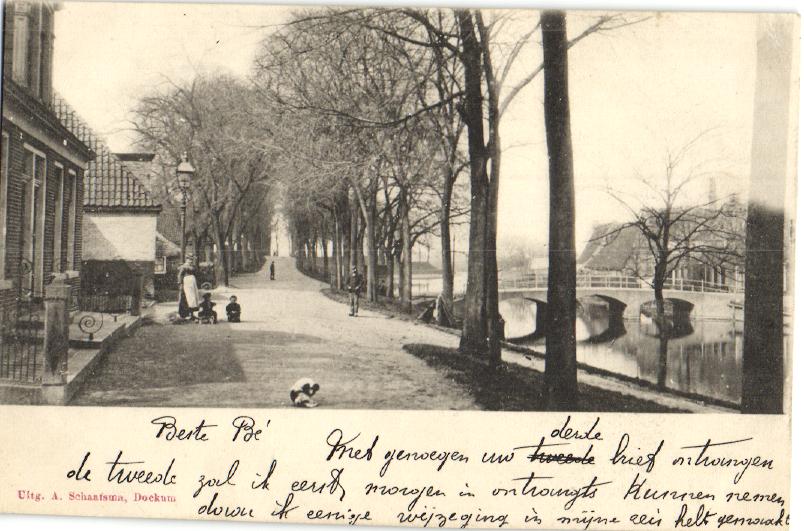 Beste Bé
Met genoegen uw tweede derde brief ontvangen
de tweede zal ik eerst morgen in ontvangts Kunnen nemen
Uitg. A. Schaafsma, Dockum
ik eenige wijzeging in mijne heb gemaakt